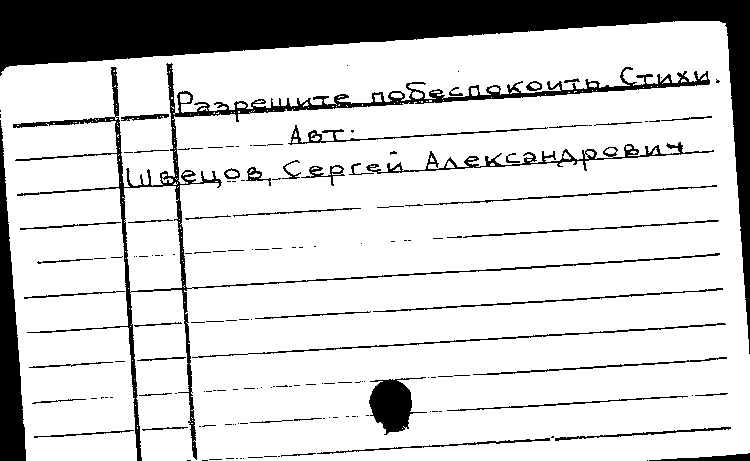 Разрешите побеспокоить. Стихи.
Авт:
Швецов, Сергей Александрович